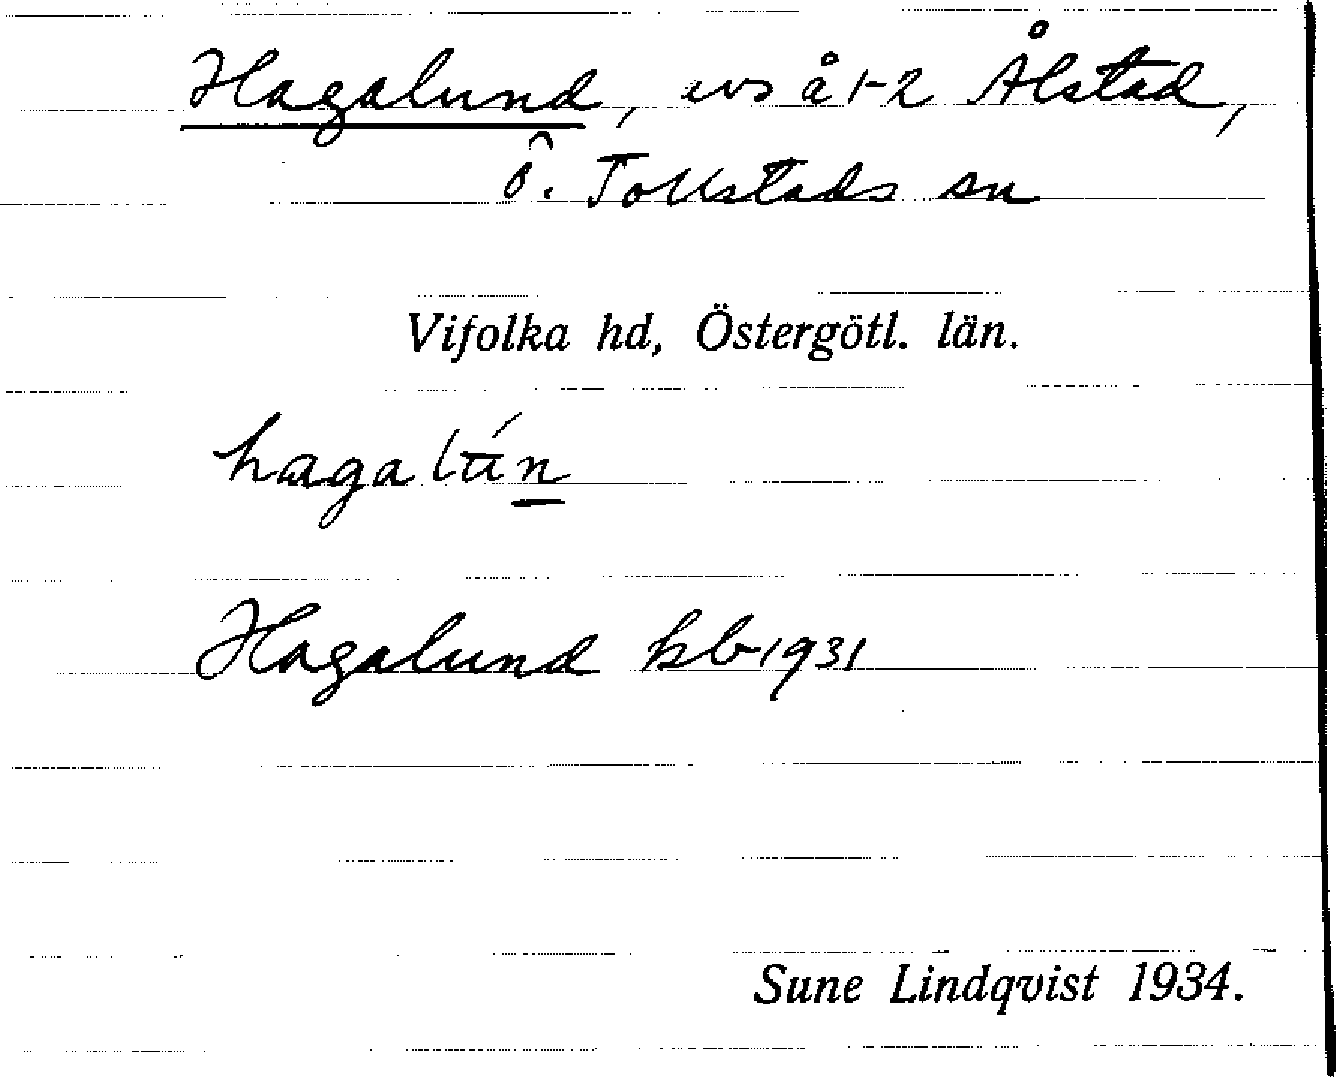 Hagalund, avs å 1-2 Ålstad,
Ö. Tollstads sn
Vifolka hd, Östergötl. län.
hagalún
Hagalund kb 1931
Sune Lindqvist 1934.